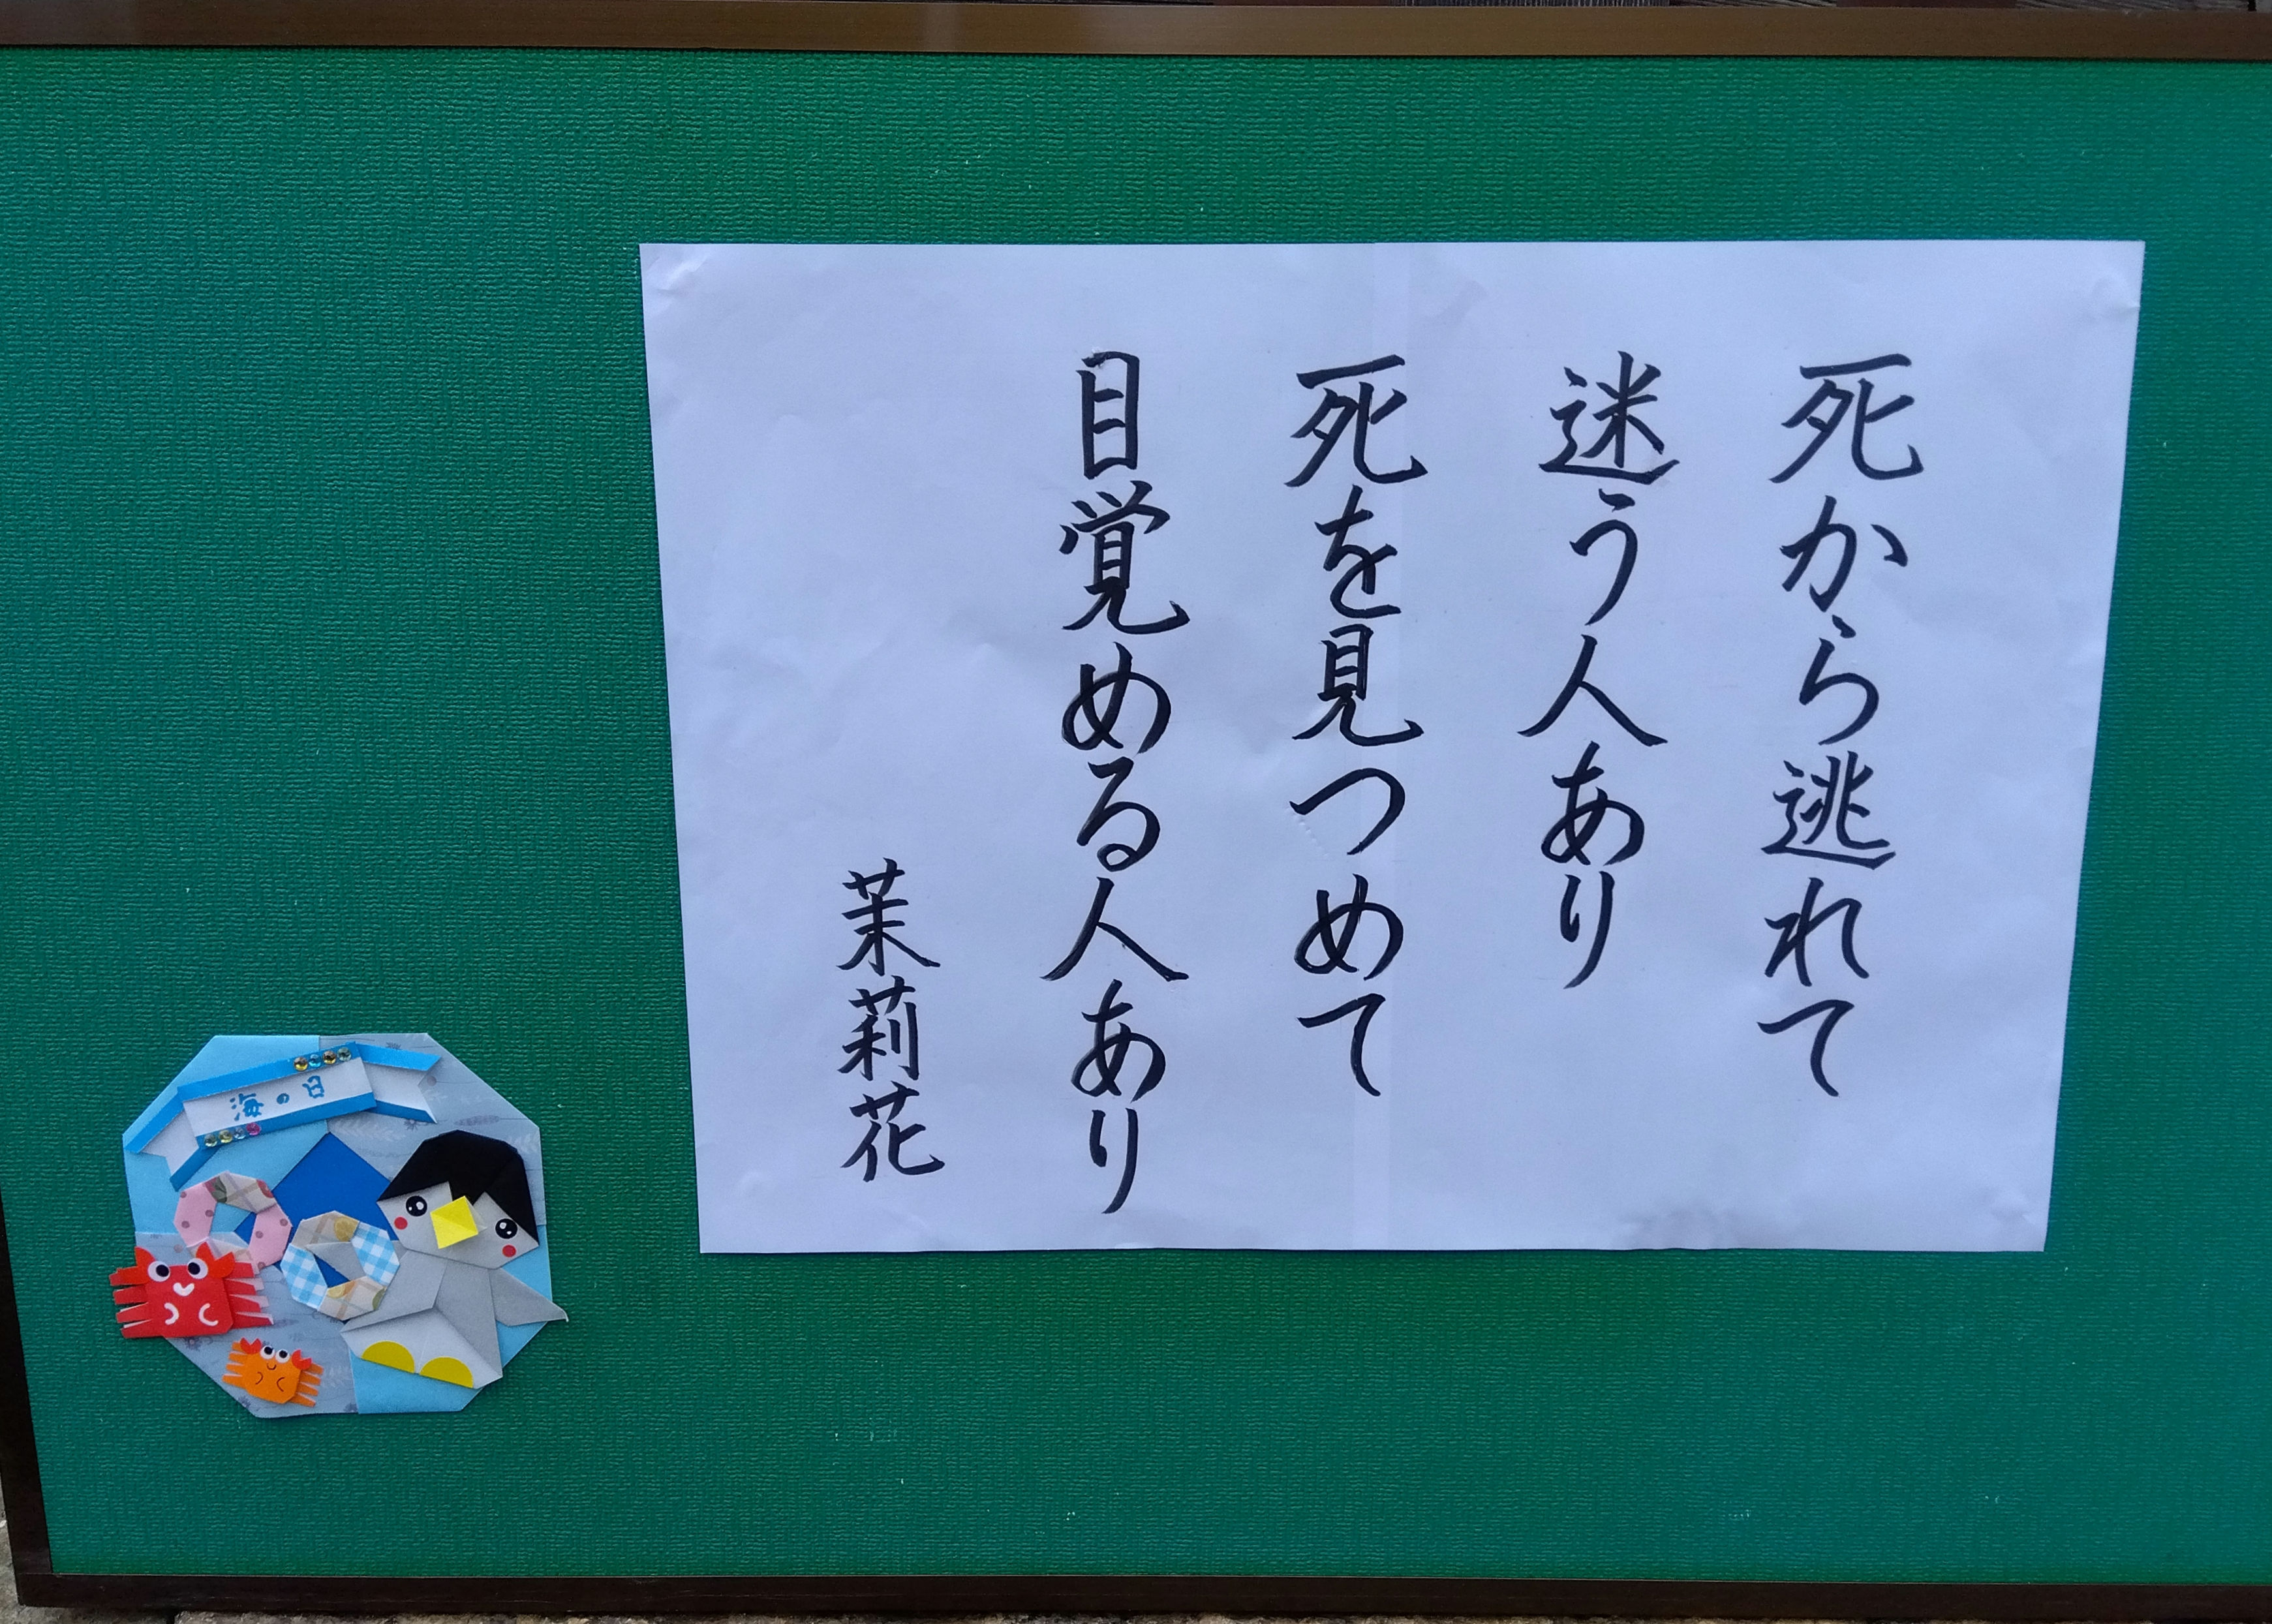 死から逃れて
迷う人あり
死を見つめて
目覚める人あり
茉莉花
海の日